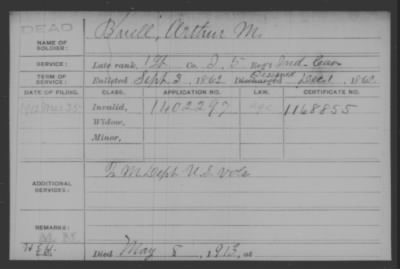 DEAD
NAME OF SOLDIER: Buell, Arthur M.
SERVICE: Late rank, Co. I, 5 Reg't Ind. Cav.
TERM OF SERVICE: Enlisted Sept. 3, 1862 Discharged Dec. 1, 1862
Resigned
DATE OF FILING. CLASS. APPLICATION NO. LAW. CERTIFICATE NO.
Invalid, 1402297 1168855
Widow,
Minor,
ADDITIONAL SERVICES: Q M Dept U.S. Vols
REMARKS:
Died May 8, 1913, at